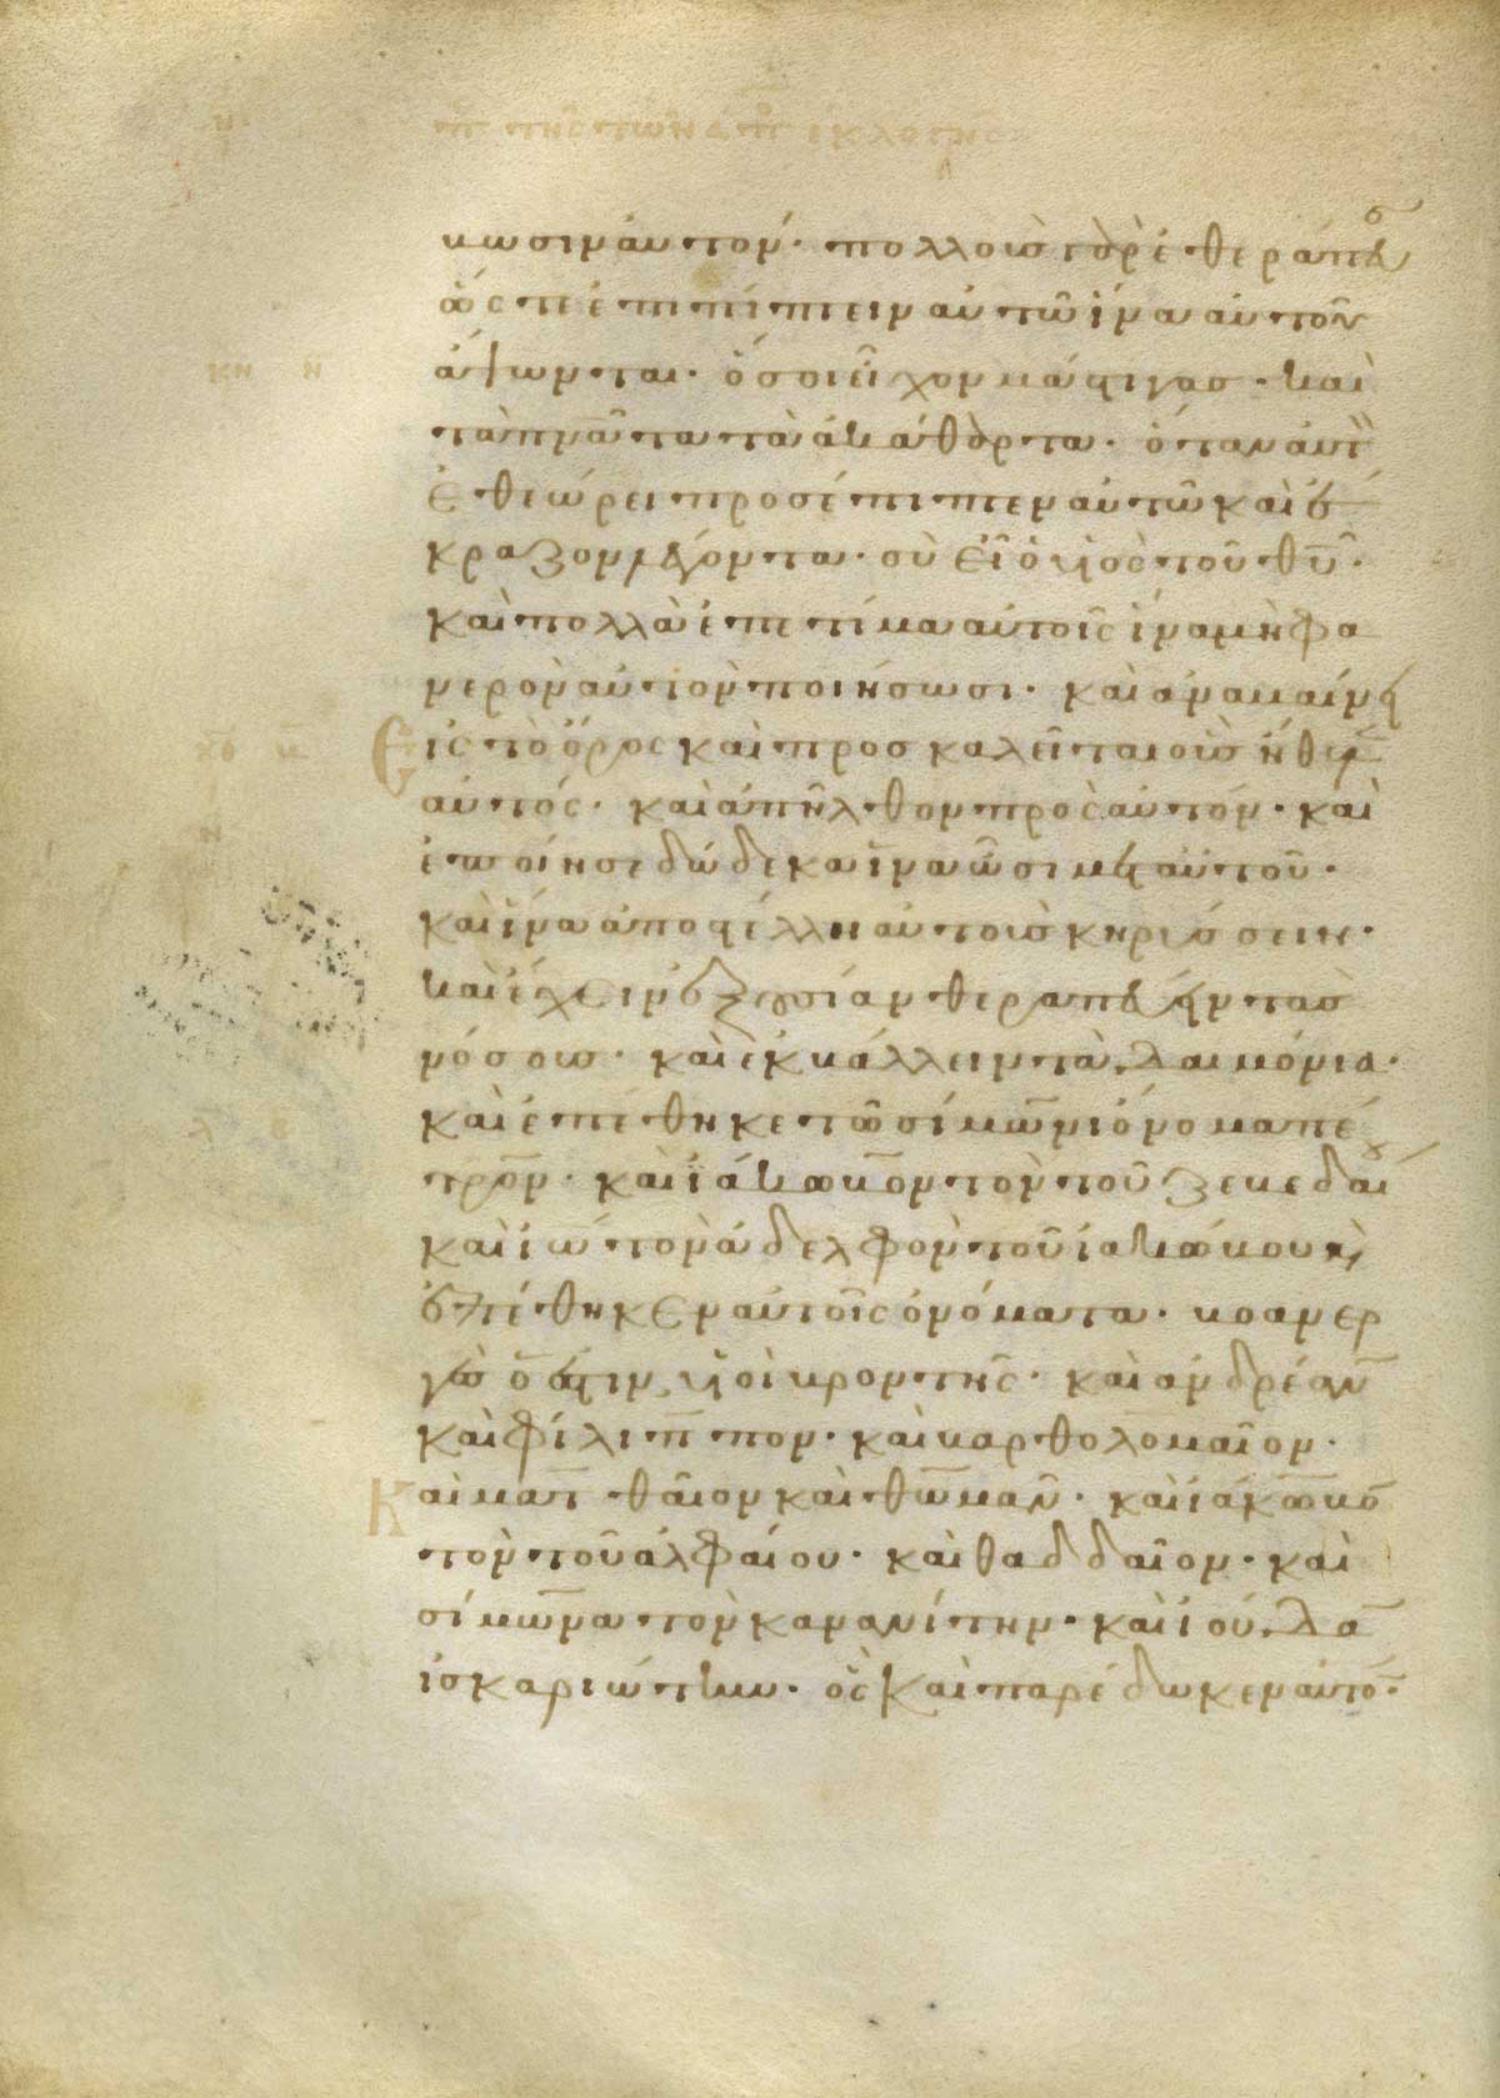 βωσιν αυτόν· πολλοὺς γὰρ ἐθεράπευσ
ὥςτε ἐπιπίπτειν αὐτῶ ἵνα αὐτοῦ
ἅψωνται· ὅσοι εἶχον μάστιγας· καὶ
τὰ πνα̅τα τὰ ἀκάθαρτα· ὅταν αὐτ
ἐθεώρει προσέπιπτεν αὐτῶ καὶ ἐ
κραζον λέγοντα· σὺ εἶ ὁ υἱὸς τοῦ θυ̅·
καὶ πολλὰ ἐπετίμα αὐτοῖς ἵνα μὴ φα
νερὸν αὐτὸν ποιήσωσι· καὶ ἀναβαίνει
εἰς τὸ ὄρος καὶ προσκαλεῖται οὓς ἤθελεν
αὐτός· καὶ ἀπῆλθον πρὸς αὐτόν· καὶ
ἐποίησε δώδεκα ἵνα ὦσι μετ αὐτοῦ·
καὶ ἵνα ἀποστέλλη αὐτοὺς κηρύσσειν·
καὶ ἔχειν ἐξουσίαν θεραπεύειν τὰς
νόσους· καὶ ἐκβάλλειν τὰ δαιμόνια·
καὶ ἐπέθηκε τῶ σίμωνι ὄνομα πέ
τρον· καὶ ἰάκωβον τὸν τοῦ ζεβεδαίου
καὶ ἰω τὸν ἀδελφὸν τοῦ ἰακώβου κ
ἐπέθηκεν αὐτοῖς ὀνόματα· βοανερ
γὲς ὅ ἐστιν υἱοὶ βροντῆς· καὶ ἀνδρέαν
καὶ φίλιππον· καὶ βαρθολομαῖον·
Καὶ ματθαῖον καὶ θωμᾶν· καὶ ἰάκωβο
τὸν τοῦ ἀλφαίου· καὶ θαδδαῖον· καὶ
σίμωνα τὸν κανανίτην· καὶ ἰούδα
ἰσκαριώτην· ὃς καὶ παρέδωκεν αὐτό·